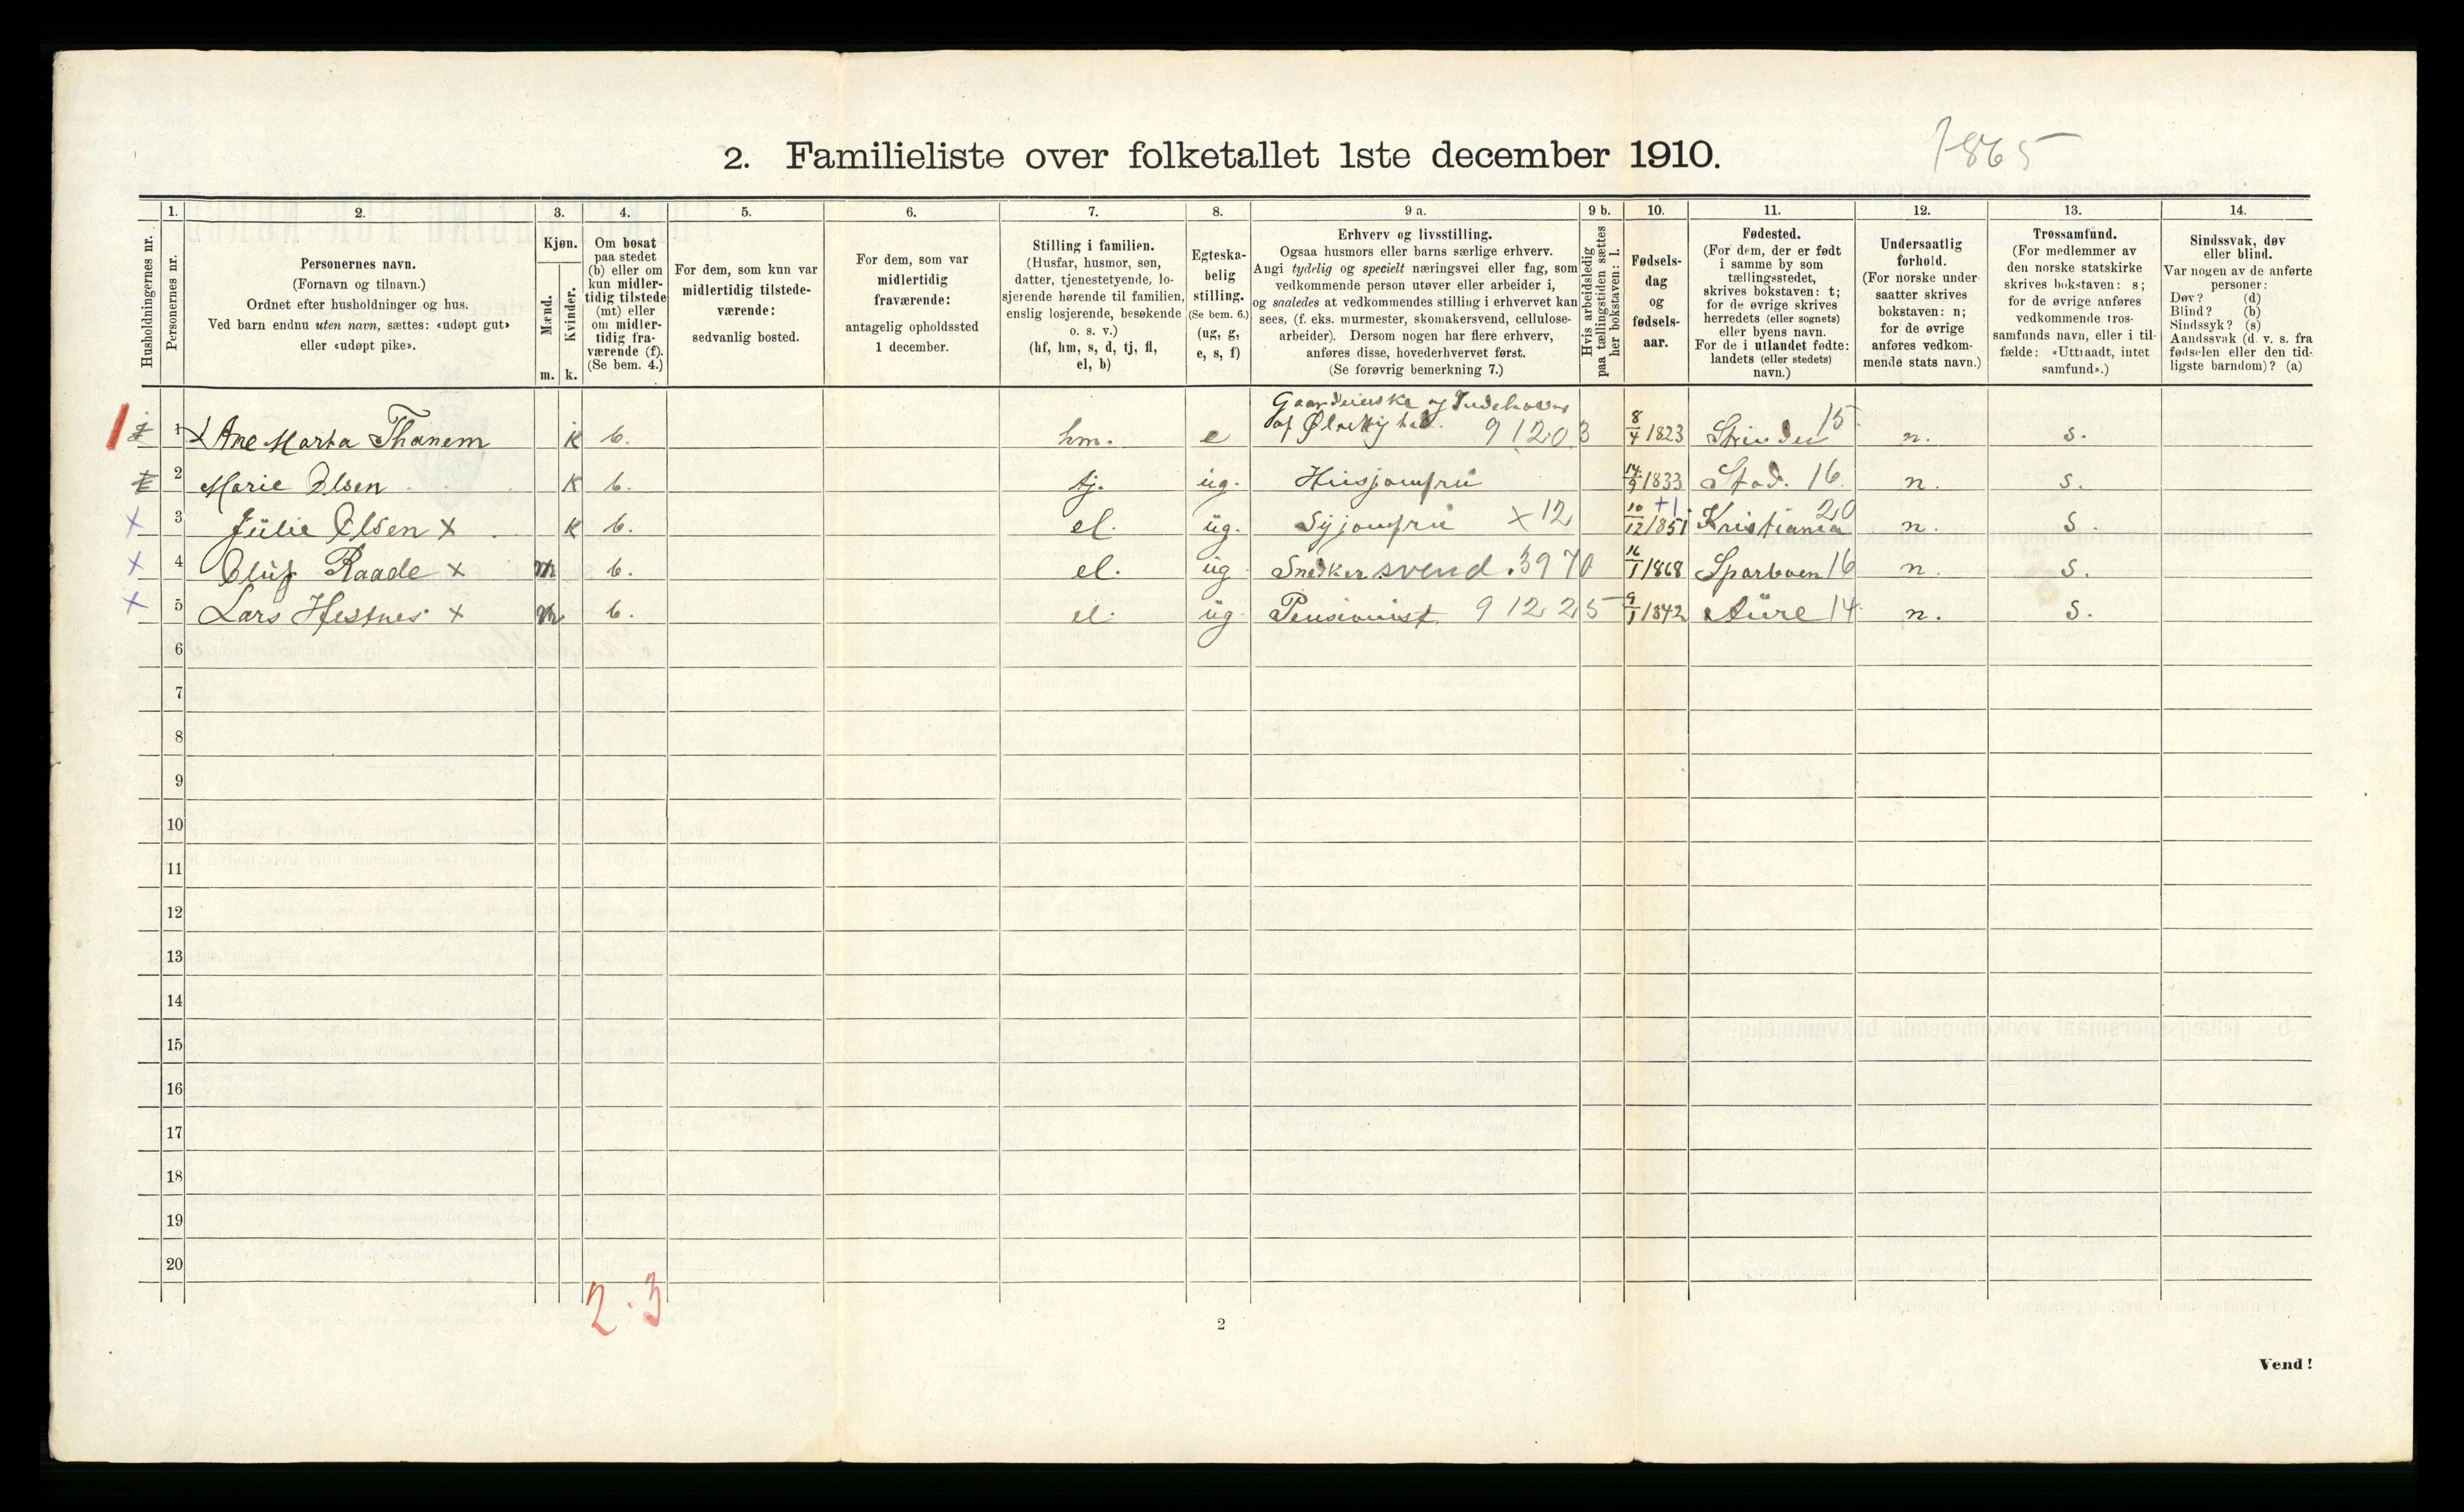 2. Familieliste over folketallet 1ste december 1910.
7865
Husholdningernes nr.
1.
Personernes nr.
2.
Personernes navn.
(Fornavn og tilnavn.)
Ordnet efter husholdninger og hus.
Ved barn endnu uten navn, sættes: «udøpt gut»
eller «udøpt pike».
3.
Kjøn.
Mænd.
Kvinder.
m. k.
4.
Om bosat
paa stedet
(b) eller om
kun midler-
tidig tilstede
(mt) eller
om midler-
tidig fra-
værende (f).
(Se bem. 4.)
5.
For dem, som kun var
midlertidig tilstede-
værende:
sedvanlig bosted.
6.
For dem, som var
midlertidig
fraværende:
antagelig opholdssted
1 december.
7.
Stilling i familien.
(Husfar, husmor, søn,
datter, tjenestetyende, lo-
sjerende hørende til familien,
enslig losjerende, besøkende
o. s. v.)
(hf, hm, s, d, tj, fl,
el, b)
8.
Egteska-
belig
stilling.
(Se bem. 6.)
(ug, g,
e, s, f)
9 a.
Erhverv og livsstilling.
Ogsaa husmors eller barns særlige erhverv.
Angi tydelig og specielt næringsvei eller fag, som
vedkommende person utøver eller arbeider i,
og saaledes at vedkommendes stilling i erhvervet kan
sees, (f. eks. murmester, skomakersvend, cellulose-
arbeider). Dersom nogen har flere erhverv,
anføres disse, hovederhvervet først.
(Se forøvrig bemerkning 7.)
9 b.
Hvis arbeidsledig
paa tællingstiden sættes
her bokstaven: l.
10.
Fødsels-
dag
og
fødsels-
aar.
11.
Fødested.
(For dem, der er født
i samme by som
tællingsstedet,
skrives bokstaven: t;
for de øvrige skrives
herredets (eller sognets)
eller byens navn.
For de i utlandet fødte:
landets (eller stedets)
navn.)
12.
Undersaatlig
forhold.
(For norske under-
saatter skrives
bokstaven: n;
for de øvrige
anføres vedkom-
mende stats navn.)
13.
Trossamfund.
(For medlemmer av
den norske statskirke
skrives bokstaven: s;
for de øvrige anføres
vedkommende tros-
samfunds navn, eller i til-
fælde: «Uttraadt, intet
samfund».)
14.
Sindssvak, døv
eller blind.
Var nogen av de anførte
personer:
Døv? (d)
Blind? (b)
Sindssyk? (s)
Aandssvak (d. v. s. fra
fødselen eller den tid-
ligste barndom)? (a)
1 Ane Marta Thanem k b. hm. e Gaardeierske og Indehaver
af Ølrettighed. 9 12.0 3 8/4 1823 Strinden 15. n. s.
2 Marie Olsen K b. tj. ug. Husjomfru 14/9 1833 Stod. 16 n. s.
x 3 Julie Olsen x K b. el. ug. Syjomfru x 12 10/12 1851 +1 Kristiania 20 n. s.
x 4 Oluf Raade x m b. el. ug Snedker svend . 3970 16/1 1868 Sparboen 16 n. s.
x 5 Lars Hestnes x m b. el. ug. Pensionist 9 12 25 9/1 1842 Aure 14. n. s.
6
7
8
9
10
11
12
13
14
15
16
17
18
19
20
2 . 3
2
Vend!